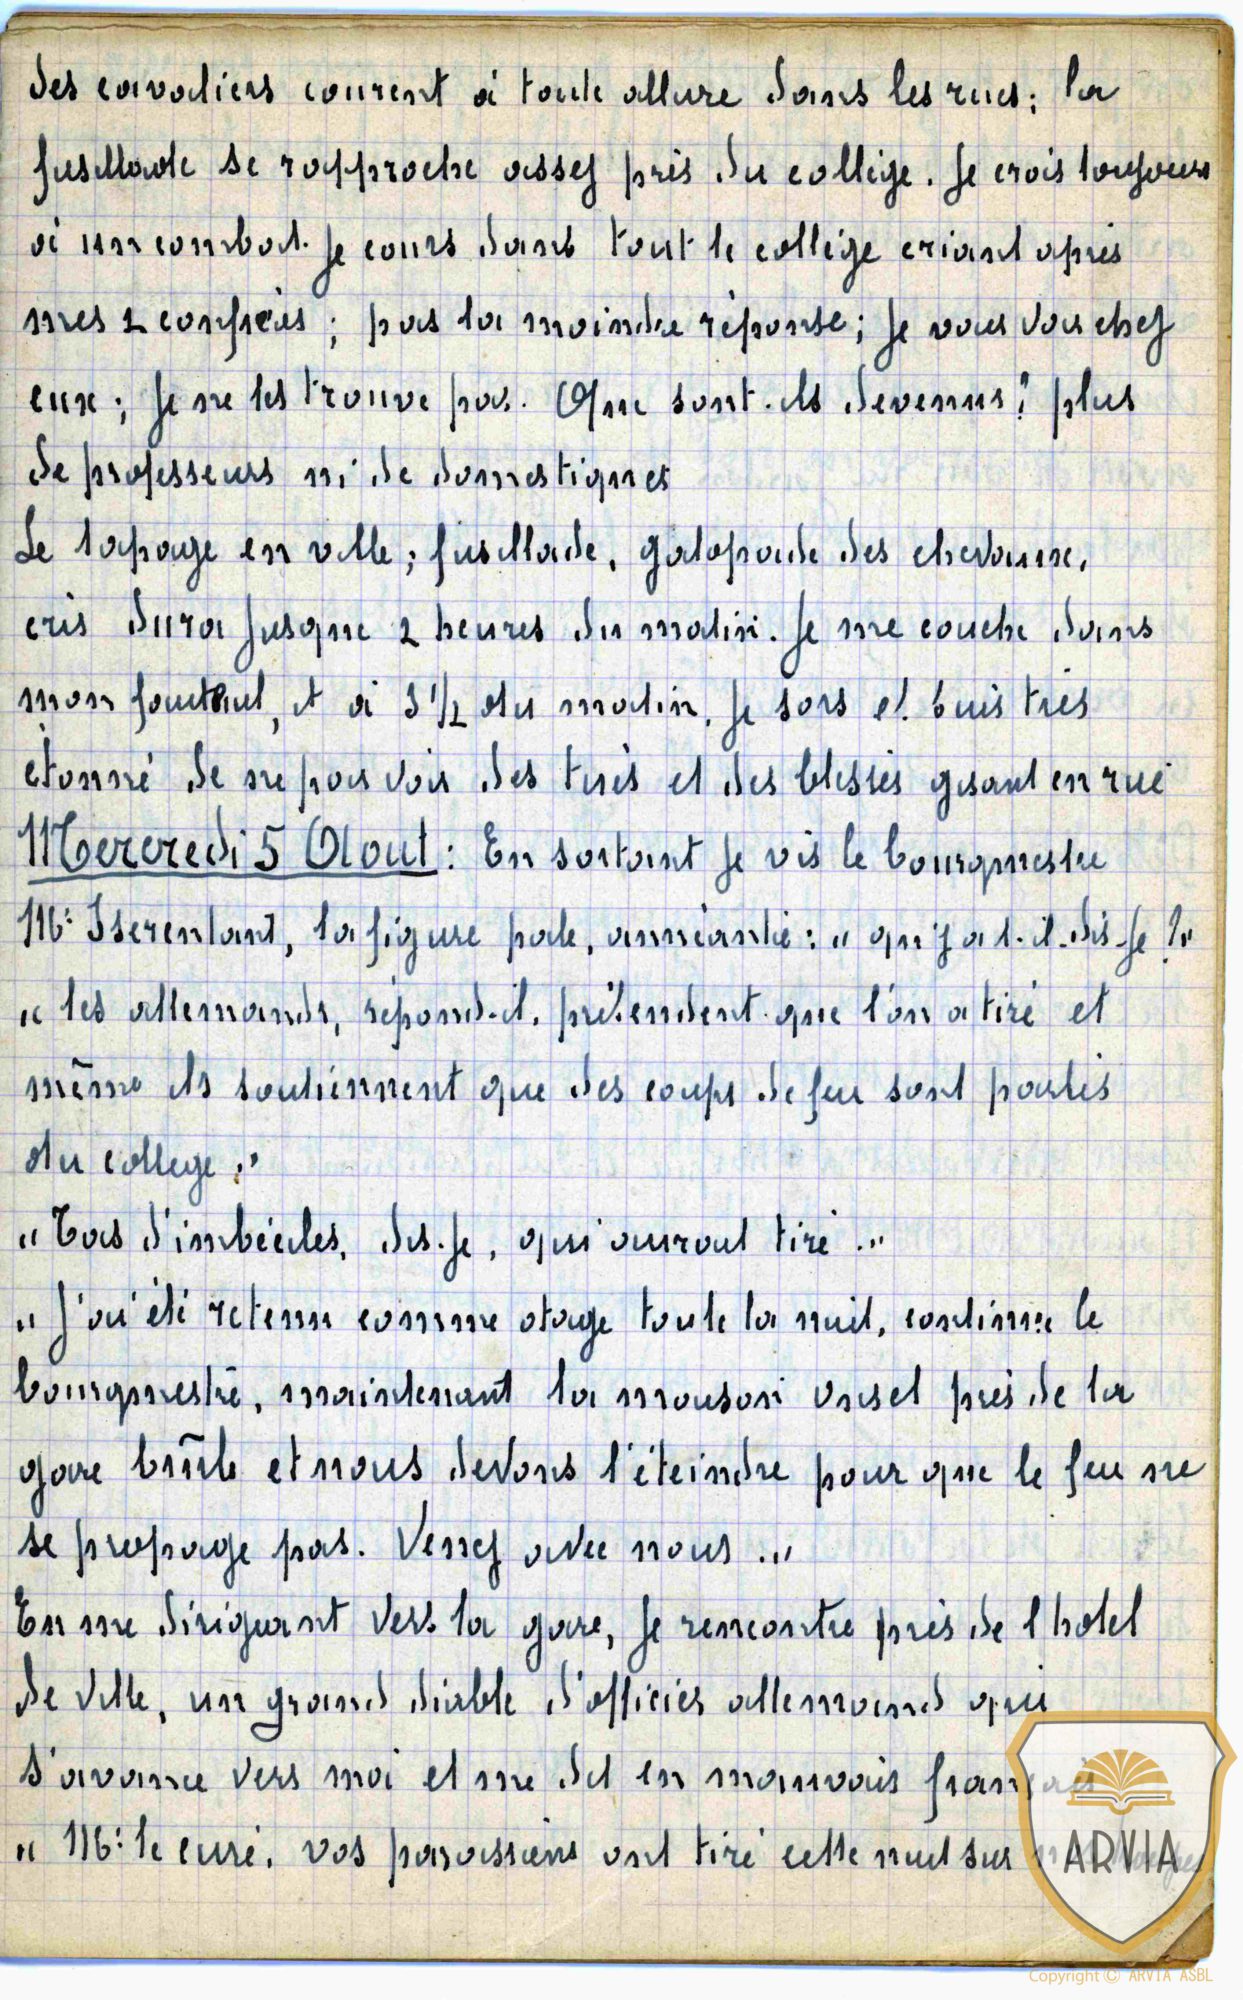 des cavaliers courent à toute allure dans les rues; la
fusillade se rapproche assez près du collège. Je crois toujours
à un combat. Je cours dans tout le collège criant après
mes 2 confrères; pas la moindre réponse; Je vais voir chez
eux; Je ne les trouve pas. Que sont-ils devenus? plus
de professeurs ni de domestiques
Le tapage en ville; fusillade, galopade des chevaux,
cris dura jusque 2 heures du matin. Je me couche dans
mon fauteuil, et à 3 1/2 du matin, Je sors et suis très
étonné de ne pas voir des tués et des blessés gisant en rue
Mercredi 5 Aout: En sortant Je vis le bourgmestre
Mr Iserentant, la figure pale, anéantie: "qu'y a t-il-dis-Je?"
"les allemands, répond-il, prétendent que l'on a tiré et
même ils soutiennent que des coups de feu sont partis
du college."
"Tas d'imbéciles, dis-Je, qui auraut tiré."
"J'ai été retenu comme otage toute la nuit, continue le
bourgmestre, maintenant la maison près de la
gare brûle et nous devons l'éteindre pour que le feu ne
se propage pas. Venez avec nous."
En me dirigeant vers la gare, Je rencontre près de l'hotel
de ville, un grand diable d'officier allemand qui
s'avance vers moi et me dit en mauvais français
"Mr le curé, vos paroissiens ont tiré cette nuit sur
ARVIA
Copyright © ARVIA ASBL